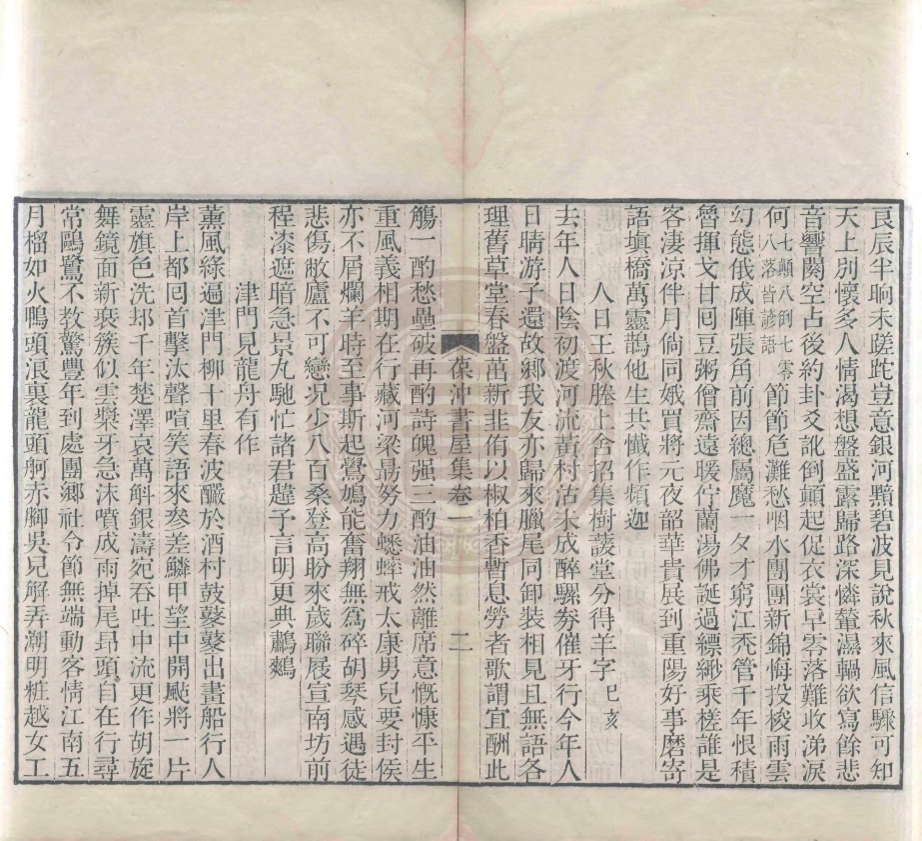 良辰半晌未蹉跎豈意銀河黯碧波見說秋來風信驟可知
天上別懷多人情渴想盤盛露歸路深憐輦濕輞欲寫餘悲
音響闋空占後約卦爻訛倒顛起促衣裳早零落難收涕淚
何七顛八倒七零八落皆諺語節節危灘愁咽水團團新錦悔投梭雨雲
幻態俄成陣張角前因總屬魔一夕才窮江禿管千年恨積
魯揮戈甘囘豆粥僧齋遠暖佇蘭湯佛誕過縹緲乘槎誰是
客淒涼伴月倘同娥買將元夜韶華貴展到重陽好事磨寄
語塡橋萬靈鵲他生共懺作頻迦
人日王秋塍上舍招集樹護堂分得羊字己亥
去年人日陰初渡河流黃村沽未成醉騾券催牙行今年人
日晴游子還故鄉我友亦歸來臘尾同卸裝相見且無語各
理舊草堂春盤萬新韭侑以椒柏香暫息勞者歌謂宜酬此
葆沖書屋集卷一
二
觴一酌愁壘破再酌詩魄强三酌油油然離席意慨慷平生
重風義相期在行藏河梁勗努力蟋蟀戒太康男兒要封侯
亦不屑爛羊時至事斯起鷽鳩能奮翔無爲碎胡琴感遇徒
悲傷敝廬不可戀况少八百桑登高盼來歲聯屐宣南坊前
程漆遮暗急景九馳忙諸君韙予言明更典鷫鷞
津門見龍舟有作
薰風綠遍津門柳十里春波釅於酒村鼓鼕鼕出畫船行人
岸上都囘首擊汰聲喧笑語來參差鱗甲望中開颭將一片
靈旗色洗却千年楚澤哀萬斛銀濤宛吞吐中流更作胡旋
舞鏡面新裵簇似雲槳牙急沫噴成雨掉尾昂頭自在行尋
常鷗鷺不教驚豐年到處團鄉社令節無端動客情江南五
月榴如火鴨頭浪裏龍頭舸赤腳吳兒解弄潮明粧越女工